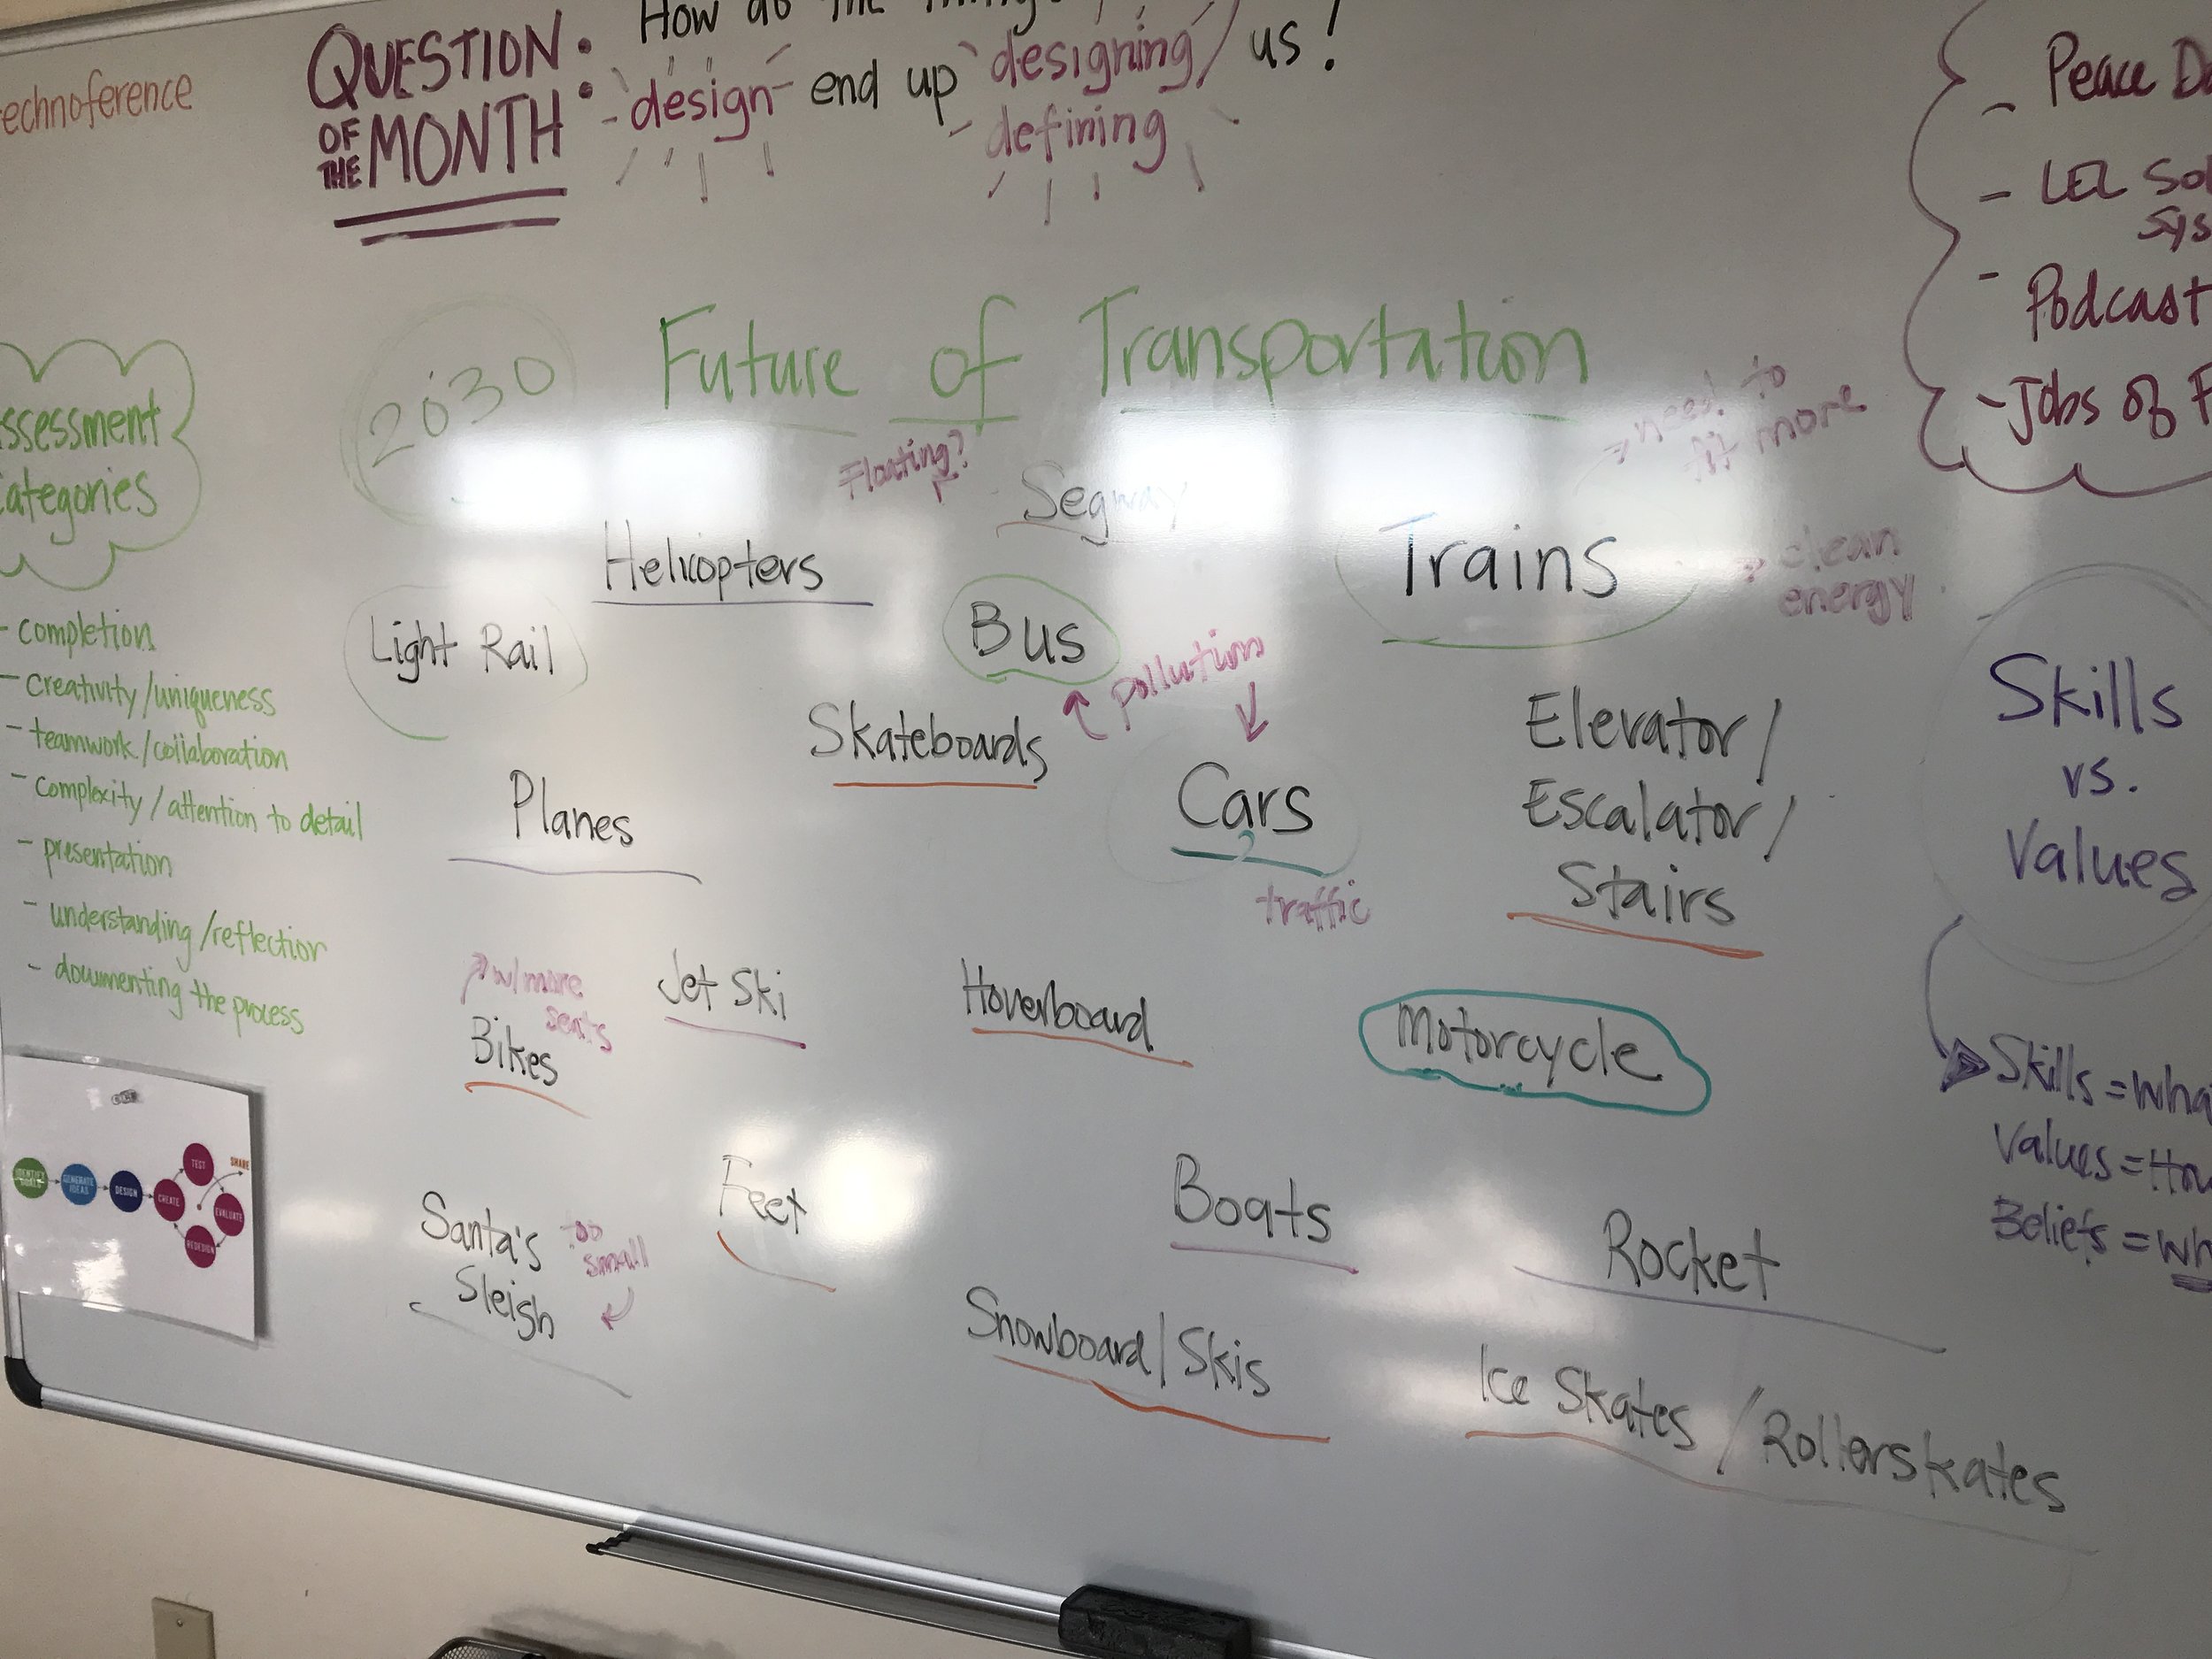 echnoference
QUESTION
OF
THE MONTH:
How do the
design end up designing/ us!
defining
Peace D
- LEL Sol
Sys
- Podcast
- Jobs of F
2030
Future of Transportation
Floating?
Segway
→ need to
fit more
Helicopters
Trains
→ clean
energy
Light Rail
Bus
pollution
Skateboards
Planes
Cars
traffic
Elevator/
Escalator/
Stairs
w/more
seats
Bikes
Jet Ski
Hoverboard
Motorcycle
Santa's
Sleigh
too
small
Feet
Boats
Rocket
Snowboard/Skis
Ice Skates / Rollerskates
ssessment
ategories
- completion
- creativity/uniqueness
- teamwork/collaboration
- complexity/attention to detail
- presentation
- understanding/reflection
- documenting the process
Skills
vs.
Values
Skills = wha
Values = How
Beliefs = wh
IDENTIFY
GENERATE
IDEAS
DESIGN
CREATE
TEST
EVALUATE
REDESIGN
SHARE